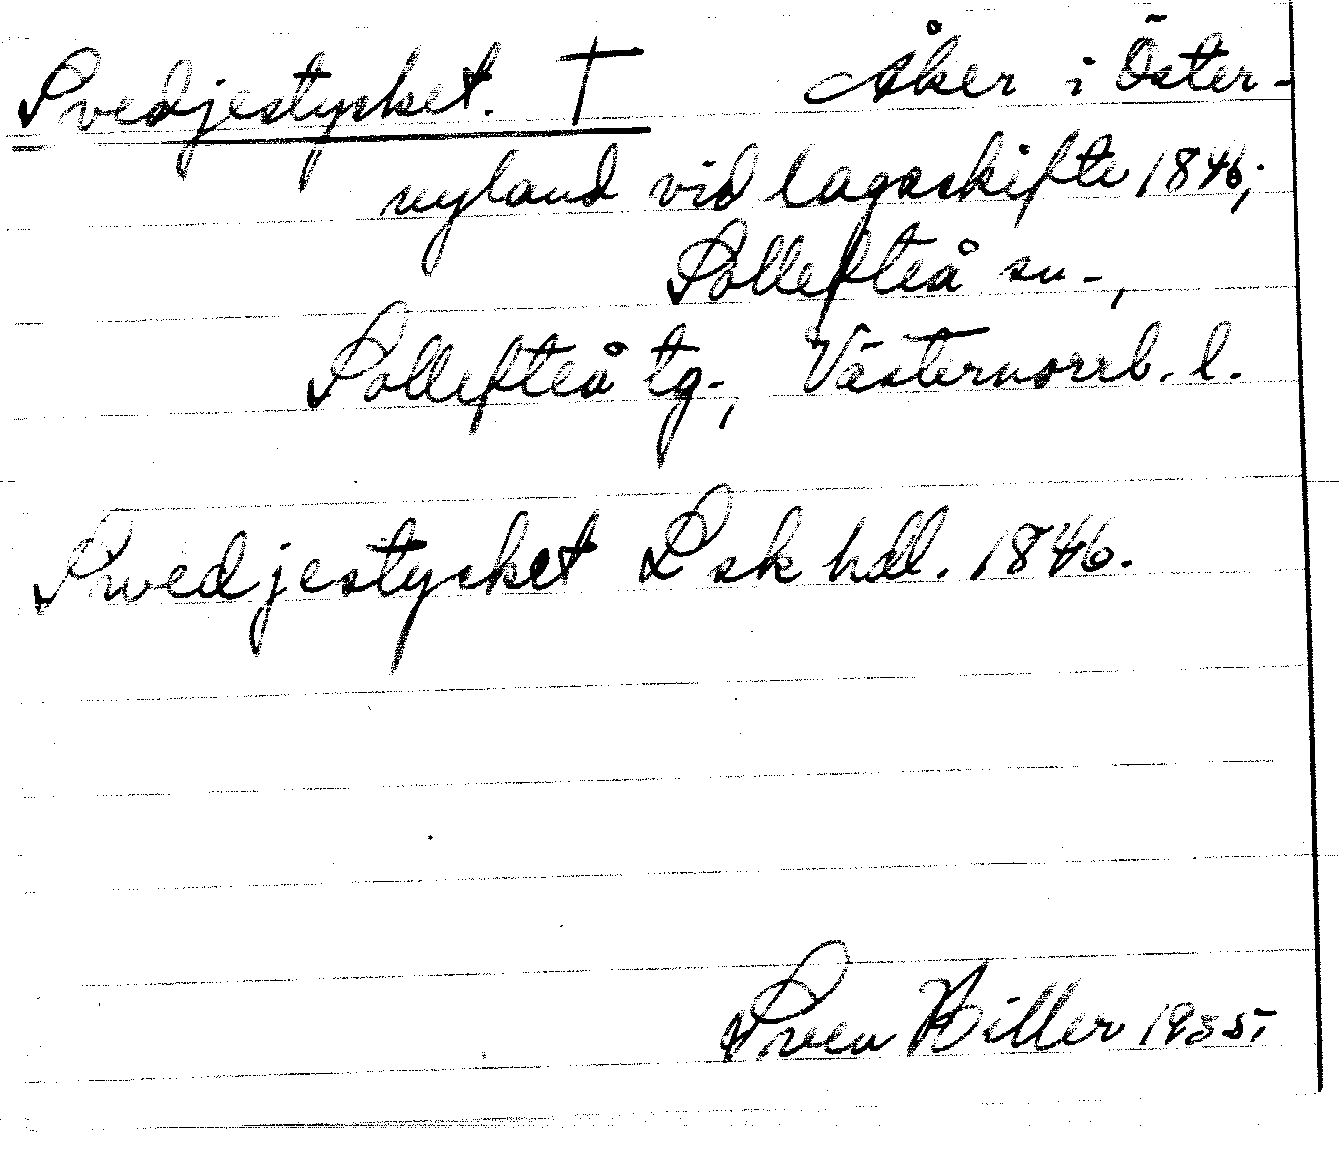 Svedjestycket. † Åker i Öster-
nyland vid lagaskifte 1846;
Sollefteå sn-,
Sollefteå tg-, Västernorrl. l.
Swedjestycket Lsk hdl. 1846.
Sven Hiller 1935